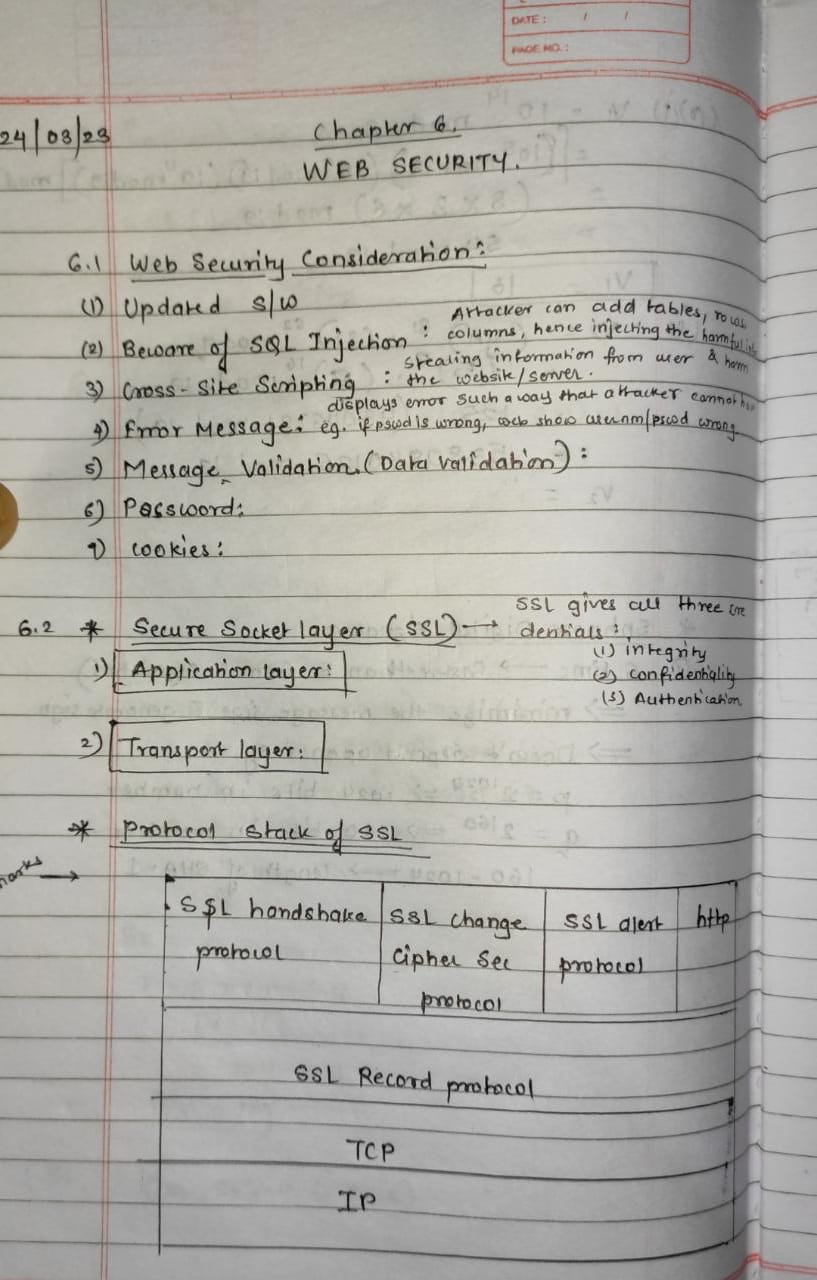 DATE: / /
PAGE NO.:
24/03/23
Chapter 6.
WEB SECURITY.
6.1 Web Security Consideration:
(1) Updated s/w
(2) Beware of SQL Injection : Attacker can add tables, rows
columns, hence injecting the harmful
3) Cross-Site Scripting : stealing information from user & harm
the website/server.
4) Error Message: displays error such a way that attacker cannot
eg. if pswd is wrong, show usernm/pswd wrong
5) Message Validation. (Data validation) :
6) Password:
7) cookies:
6.2 * Secure Socket layer (SSL) → SSL gives all three cre
dentials:
(1) integrity
(2) confidentiality
(3) Authentication
1) Application layer:
2) Transport layer:
* Protocol stack of SSL
marks →
SSL handshake protocol
SSL change cipher Sec protocol
SSL alert protocol
http
SSL Record protocol
TCP
IP